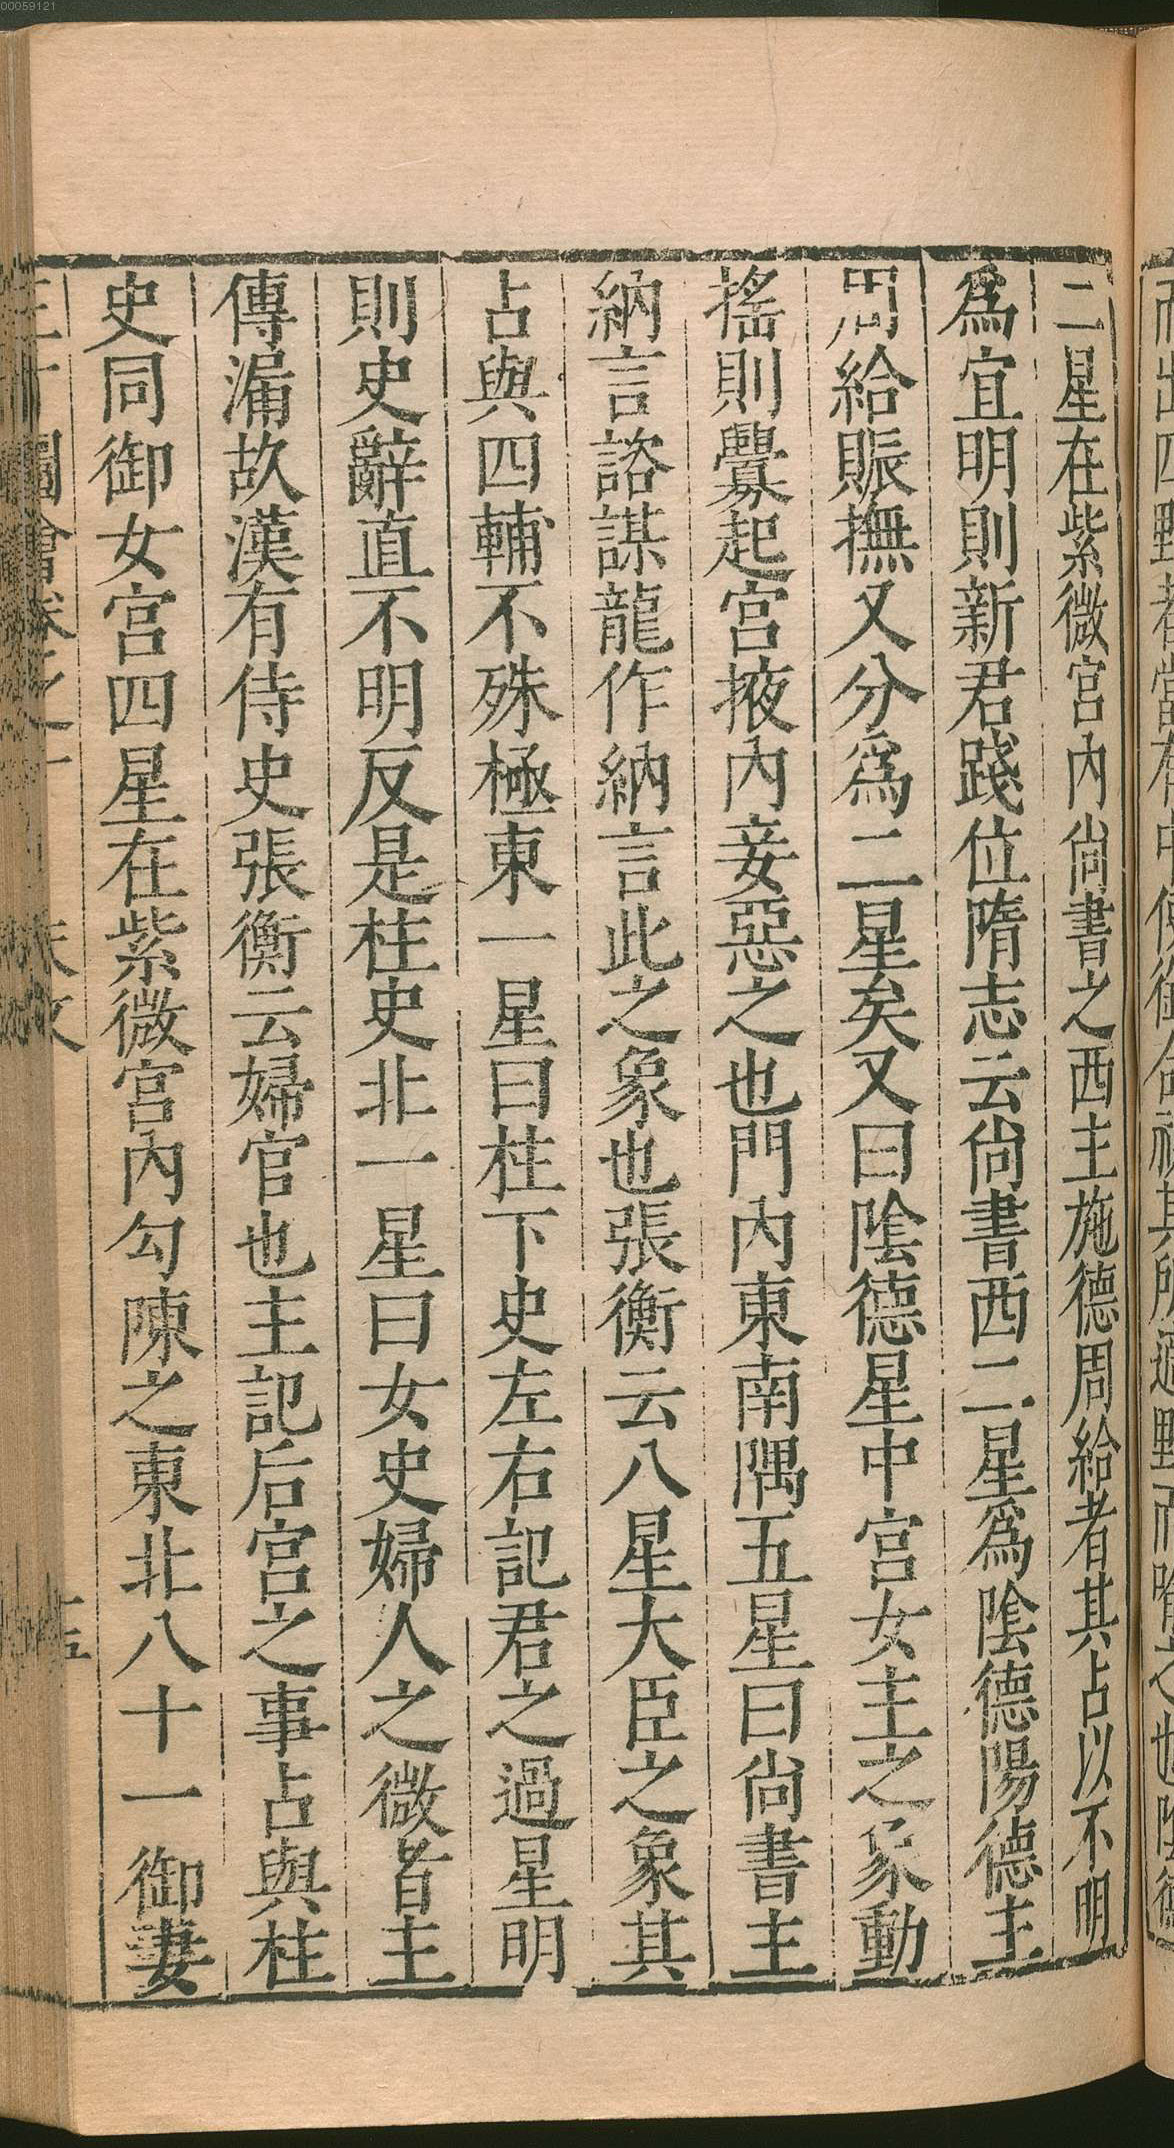 00059121
二星在紫微宮內尙書之西主施德周給者其占以不明
爲宜明則新君踐位隋志云尙書西二星爲陰德陽德主
周給賑撫又分爲二星矣又曰陰德星中宮女主之象動
搖則釁起宮掖內妾惡之也門內東南隅五星曰尙書主
納言諮謀龍作納言此之象也張衡云八星大臣之象其
占與四輔不殊極東一星曰柱下史左右記君之過星明
則史辭直不明反是柱史北一星曰女史婦人之微者主
傳漏故漢有侍史張衡云婦官也主記后宮之事占與柱
史同御女宮四星在紫微宮內勾陳之東北八十一御妻